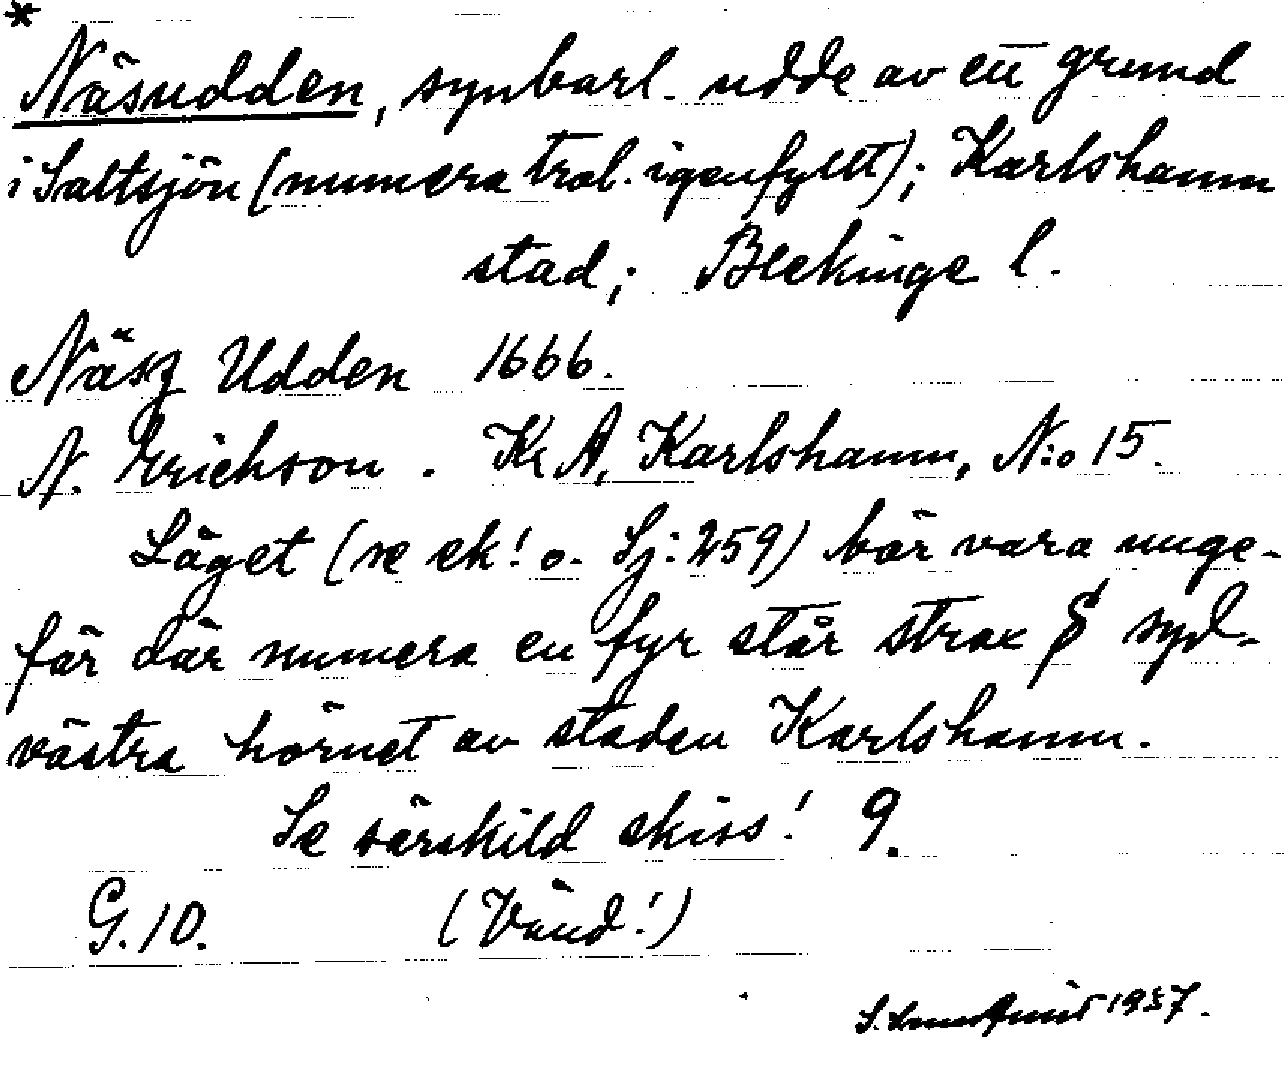 *
Näsudden, synbarl. udde av ett grund
i Saltsjön (numera trol. igenfyllt); Karlshamn
stad; Blekinge l.
Näsz Udden 1666.
N. Erichson. Kr A, Karlshamn, N:o 15.
Läget (se ek! o. Sj: 259) bör vara unge-
fär där numera en fyr står strax S syd-
västra hörnet av staden Karlshamn.
Se särskild skiss! 9.
G. 10. (Vänd!)
S. 1937.